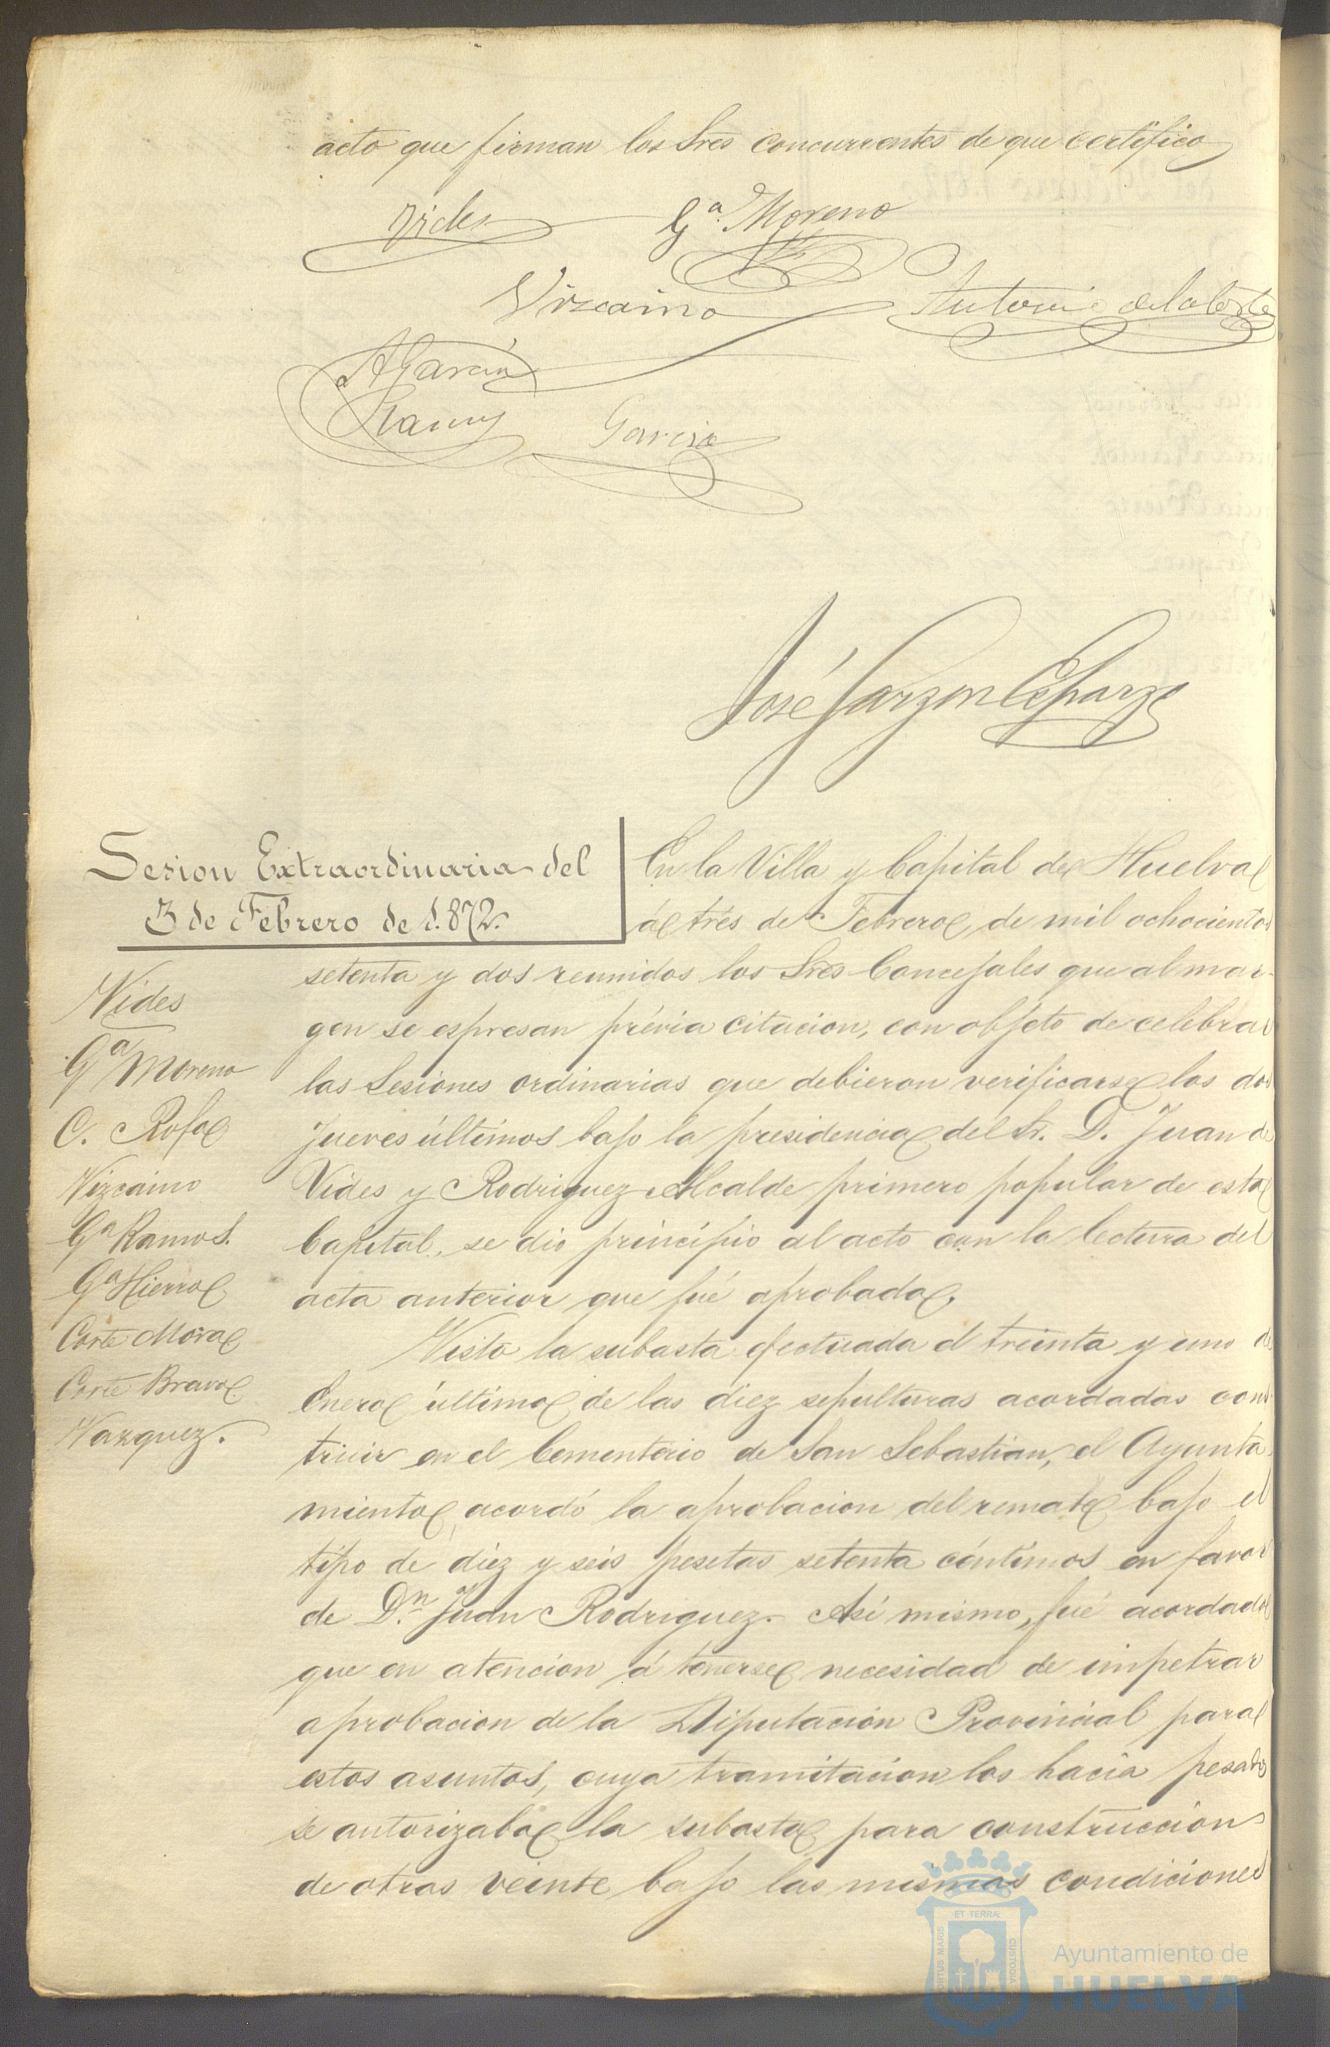 acto que firman los Sres concurrentes de que certifico
Vides
Gª Moreno
Vizcaino
Antonio de la Corte
A García
Ramos
Garcia
José Garzon Esparza
Sesion Extraordinaria del
3 de Febrero de 1.872.
Vides
Gª Moreno
C. Rofa
Vizcaino
Gª Ramos.
Gª Hierro
Corte Mora
Corte Bravo
Vazquez.
En la Villa y Capital de Huelva
á tres de Febrero de mil ochocientos
setenta y dos reunidos los Sres Concejales que al mar-
gen se espresan prévia citacion, con objeto de celebrar
las Sesiones ordinarias que debieron verificarse los dos
Jueves últimos bajo la presidencia del Sr. D. Juan de
Vides y Rodriguez Alcalde primero popular de esta
Capital, se dio principio al acto con la lectura del
acta anterior que fué aprobada.
Visto la subasta efectuada el treinta y uno de
Enero último de las diez sepulturas acordadas cons-
truir en el Cementerio de San Sebastian, el Ayunta-
miento acordó la aprobacion del remate bajo el
tipo de diez y seis pesetas setenta céntimos en favor
de D.n Juan Rodriguez. Asi mismo, fué acordado
que en atencion á tenerse necesidad de impetrar
aprobacion de la Diputación Provincial para
estos asuntos, cuya tramitacion los hacia pesados
se autorizaba la subasta para construccion
de otras veinte bajo las mismas condiciones
ET TERRÆ
PORTUS MARIS
CUSTODIA
Ayuntamiento de
HUELVA